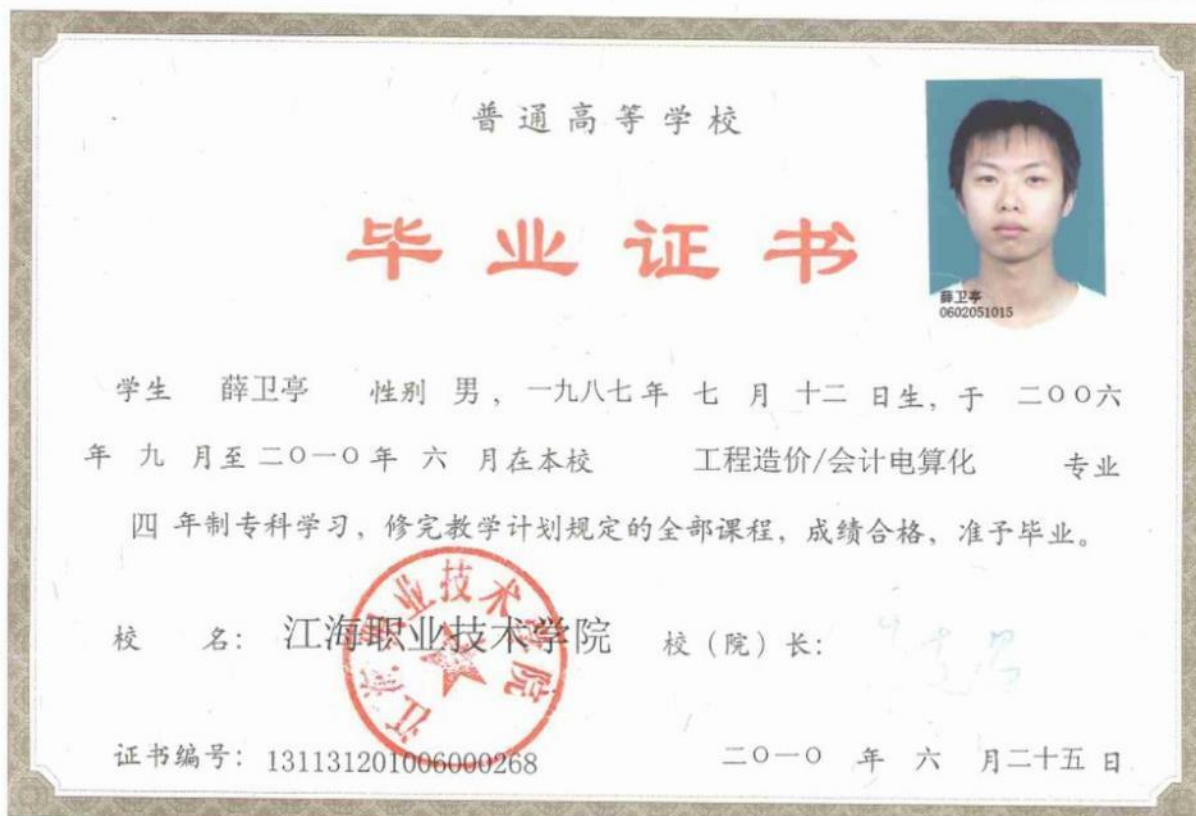 普通高等学校
毕业证书
薛卫亭
0602051015
学生 薛卫亭 性别 男，一九八七年 七 月 十二 日生，于 二〇〇六
年 九 月至二〇一〇年 六 月在本校 工程造价/会计电算化 专业
四 年制专科学习，修完教学计划规定的全部课程，成绩合格，准予毕业。
校 名：江海职业技术学院 校（院）长：
江海职业技术学院
证书编号：131131201006000268 二〇一〇 年 六 月二十五日